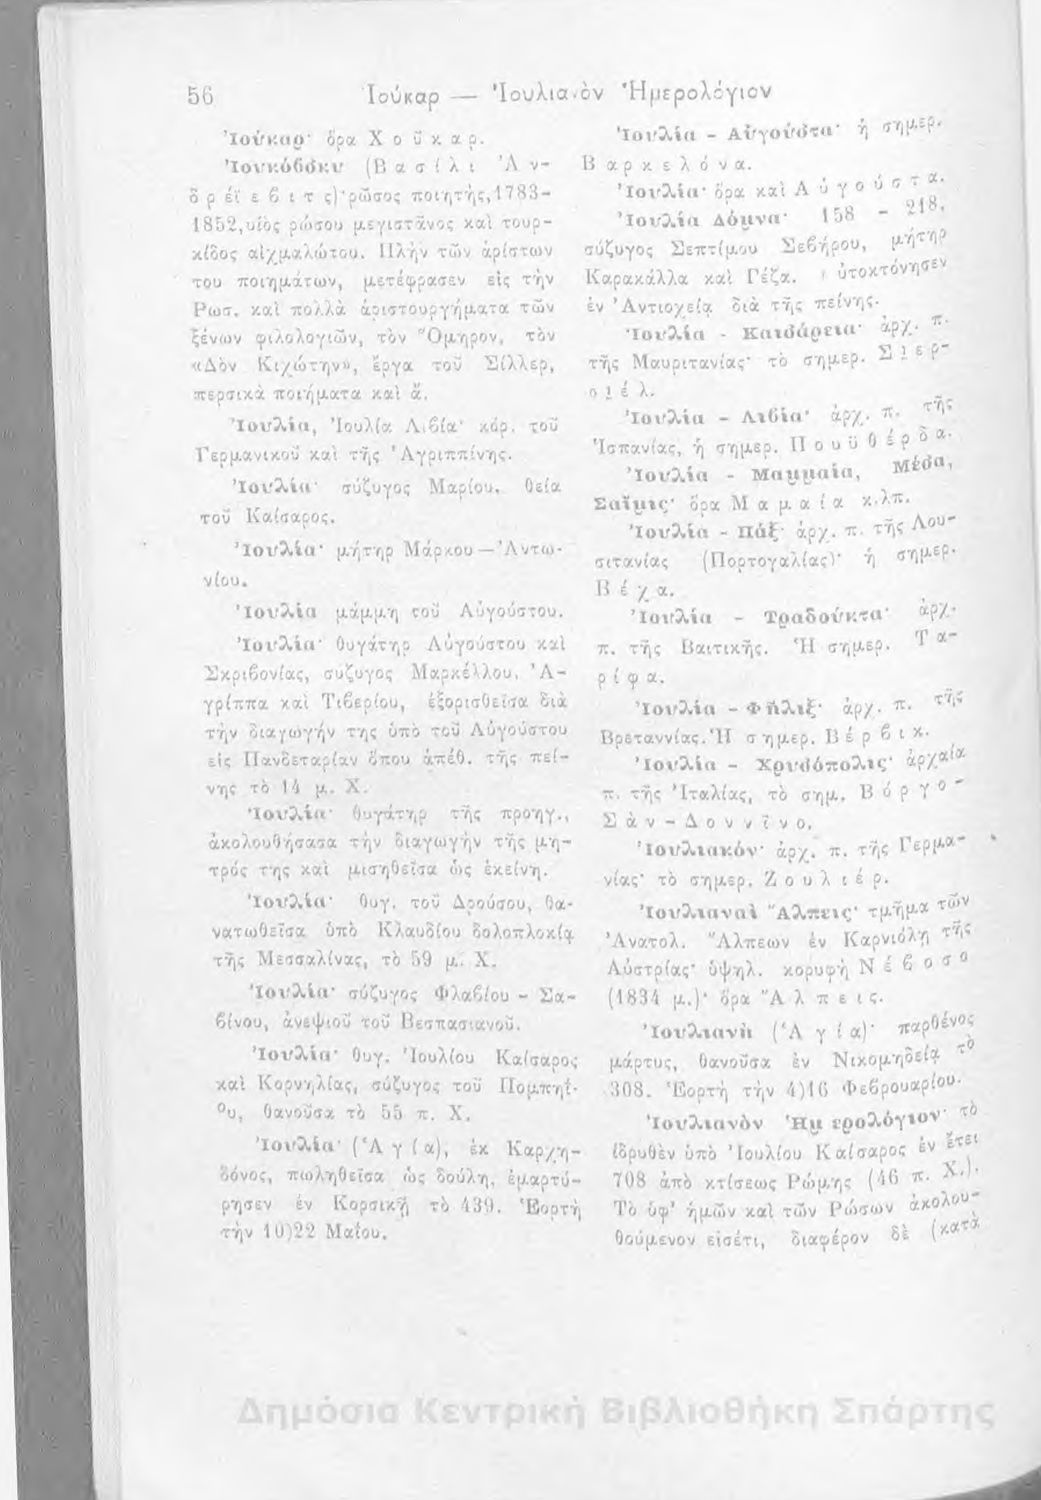 56 Ἰούκαρ — Ἰουλιανὸν Ἡμερολόγιον
Ἰούκαρ· ὅρα Χ ο ῦ κ α ρ.
Ἰουκόβσκυ (Β α σ ί λ ι Ἀ ν-
δ ρ έ ϊ ε β ι τ ς)· ρῶσος ποιητής, 1783-
1852, υἱὸς ρώσου μεγιστᾶνος καὶ τουρ-
κίδος αἰχμαλώτου. Πλὴν τῶν ἀρίστων
του ποιημάτων, μετέφρασεν εἰς τὴν
Ρωσ. καὶ πολλὰ ἀριστουργήματα τῶν
ξένων φιλολογιῶν, τὸν Ὅμηρον, τὸν
«Δὸν Κιχώτην», ἔργα τοῦ Σίλλερ,
περσικὰ ποιήματα καὶ ἄ.
Ἰουλία, Ἰουλία Λιβία· κόρ. τοῦ
Γερμανικοῦ καὶ τῆς Ἀγριππίνης.
Ἰουλία· σύζυγος Μαρίου, θεία
τοῦ Καίσαρος.
Ἰουλία· μήτηρ Μάρκου — Ἀντω-
νίου.
Ἰουλία μάμμη τοῦ Αὐγούστου.
Ἰουλία· θυγάτηρ Αὐγούστου καὶ
Σκριβονίας, συζυγος Μαρκέλλου, Ἀ-
γρίππα καὶ Τιβερίου, ἐξορισθεῖσα διὰ
τὴν διαγωγήν της ὑπὸ τοῦ Αὐγούστου
εἰς Πανδεταρίαν ὅπου ἀπέθ. τῆς πεί-
νης τὸ 14 μ. Χ.
Ἰουλία· θυγάτηρ τῆς προηγ.,
ἀκολουθήσασα τὴν διαγωγὴν τῆς μη-
τρός της καὶ μισηθεῖσα ὡς ἐκείνη.
Ἰουλία· θυγ. τοῦ Δρούσου, θα-
νατωθεῖσα ὑπὸ Κλαυδίου δολοπλοκίᾳ
τῆς Μεσσαλίνας, τὸ 59 μ. Χ.
Ἰουλία· σύζυγος Φλαβίου - Σα-
βίνου, ἀνεψιοῦ τοῦ Βεσπασιανοῦ.
Ἰουλία· θυγ. Ἰουλίου Καίσαρος
καὶ Κορνηλίας, σύζυγος τοῦ Πομπηί-
ου, θανοῦσα τὸ 55 π. Χ.
Ἰουλία· (Ἁ γ ί α), ἐκ Καρχη-
δόνος, πωληθεῖσα ὡς δούλη, ἐμαρτύ-
ρησεν ἐν Κορσικῇ τὸ 439. Ἑορτὴ
τὴν 10)22 Μαΐου.
Ἰουλία - Αὐγούστα· ἡ σημερ.
Β α ρ κ ε λ ό ν α.
Ἰουλία· ὅρα καὶ Α ὐ γ ο ύ σ τ α.
Ἰουλία Δόμνα· 158 - 218,
σύζυγος Σεπτίμου Σεβήρου, μήτηρ
Καρακάλλα καὶ Γέζα. ὑτοκτόνησεν
ἐν Ἀντιοχείᾳ διὰ τῆς πείνης.
Ἰουλία - Καισάρεια· ἀρχ. π.
τῆς Μαυριτανίας· τὸ σημερ. Σ ι ε ρ-
σ ι έ λ.
Ἰουλία - Λιβία· ἀρχ. π. τῆς
Ἱσπανίας, ἡ σημερ. Π ο υ ϋ θ έ ρ δ α.
Ἰουλία - Μαμμαία, Μέσα,
Σαΐμις· ὅρα Μ α μ α ί α κ.λπ.
Ἰουλία - Πάξ· ἀρχ. π. τῆς Λου-
σιτανίας (Πορτογαλίας)· ἡ σημερ.
Β έ χ α.
Ἰουλία - Τραδούκτα· ἀρχ.
π. τῆς Βαιτικῆς. Ἡ σημερ. Τ α-
ρ ί φ α.
Ἰουλία - Φῆλιξ· ἀρχ. π. τῆς
Βρεταννίας. Ἡ σημερ. Β έ ρ β ι κ.
Ἰουλία - Χρυσόπολις· ἀρχαία
π. τῆς Ἰταλίας, τὸ σημ. Β ό ρ γ ο -
Σ ὰ ν - Δ ο ν ν ῖ ν ο.
Ἰουλιακόν· ἀρχ. π. τῆς Γερμα-
νίας· τὸ σημερ. Ζ ο υ λ ι έ ρ.
Ἰουλιαναὶ Ἄλπεις· τμῆμα τῶν
Ἀνατολ. Ἄλπεων ἐν Καρνιόλῃ τῆς
Αὐστρίας· ὑψηλ. κορυφὴ Ν έ β ο σ ο
(1834 μ.)· ὅρα Ἄ λ π ε ι ς.
Ἰουλιανὴ (Ἁ γ ί α)· παρθένος
μάρτυς, θανοῦσα ἐν Νικομηδείᾳ τὸ
308. Ἑορτὴ τὴν 4)16 Φεβρουαρίου.
Ἰουλιανὸν Ἡμερολόγιον· τὸ
ἱδρυθὲν ὑπὸ Ἰουλίου Καίσαρος ἐν ἔτει
708 ἀπὸ κτίσεως Ρώμης (46 π. Χ.).
Τὸ ὑφ' ἡμῶν καὶ τῶν Ρώσων ἀκολου-
θούμενον εἰσέτι, διαφέρον δὲ (κατὰ
Δημόσια Κεντρική Βιβλιοθήκη Σπάρτης